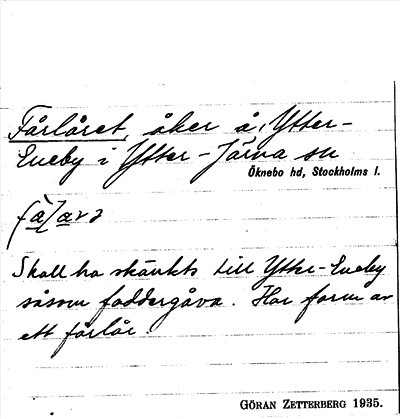 Fårlåret, åker å, Ytter-
Eneby i Ytter-Järva sn
Öknebo hd, Stockholms l.
Skall ha skänkts till Ytter-Eneby
såsom faddergåva. Har form av
ett fårlår.
GÖRAN ZETTERBERG 1935.